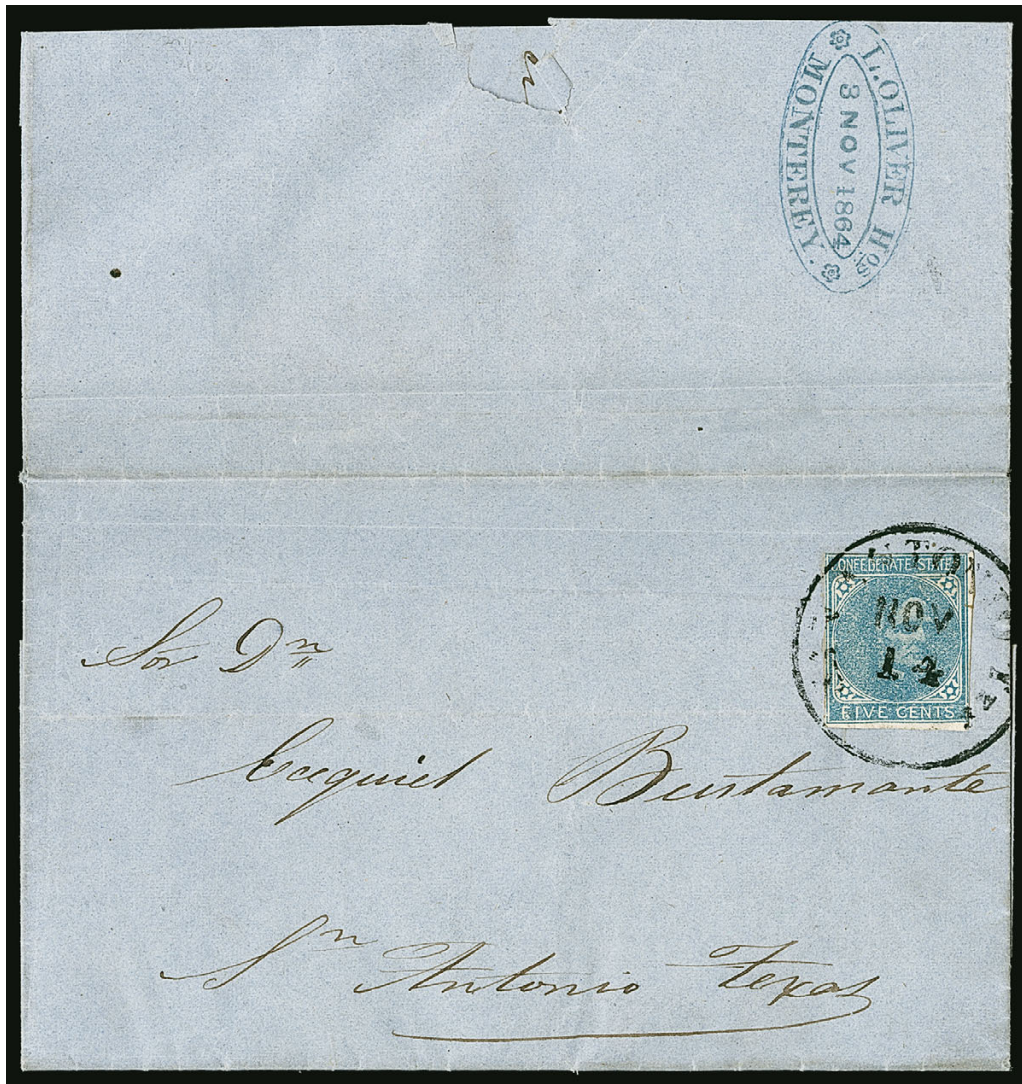 en
L. OLIVER Hos
3 NOV 1864
MONTERREY.
CONFEDERATE STATES
NOV
14
FIVE CENTS
Sor Dn
Ecequiel Bustamante
Sn Antonio Texas